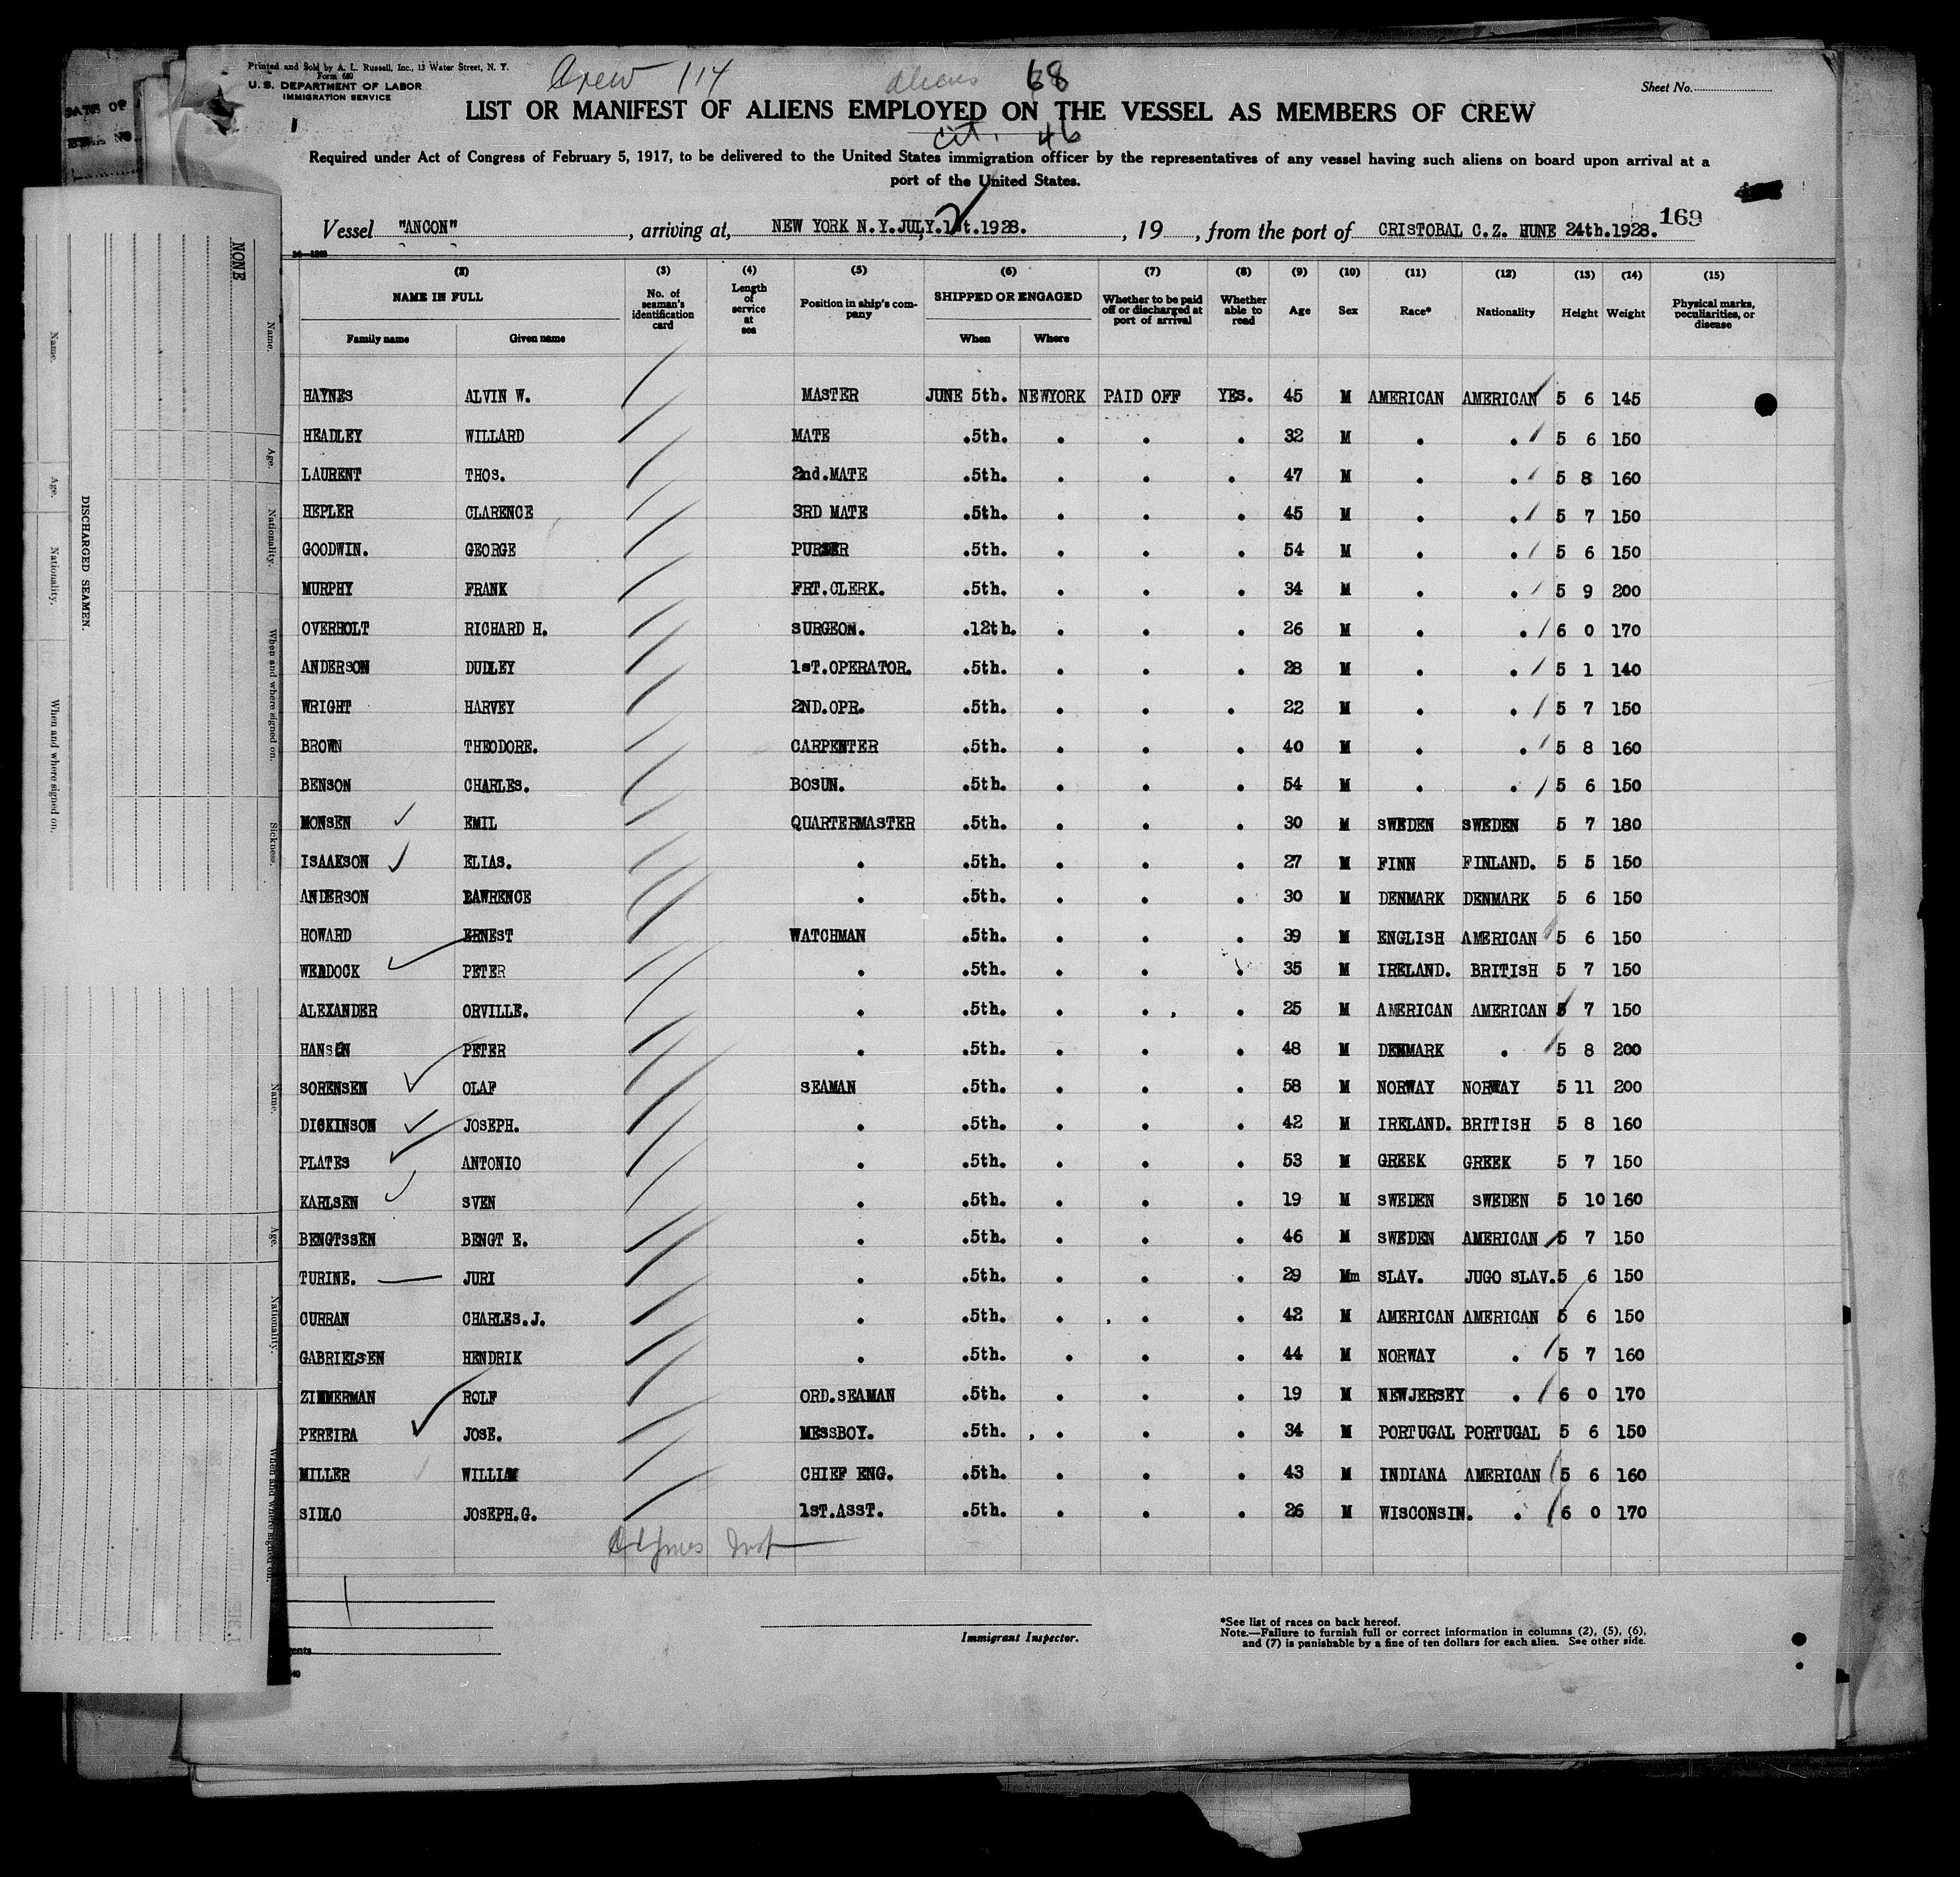 Printed and Sold by A. L. Russell, Inc., 13 Water Street, N. Y.
Form 680
U. S. DEPARTMENT OF LABOR
IMMIGRATION SERVICE
Crew 114 aliens 68
Sheet No.
LIST OR MANIFEST OF ALIENS EMPLOYED ON THE VESSEL AS MEMBERS OF CREW
cit. 46
Required under Act of Congress of February 5, 1917, to be delivered to the United States immigration officer by the representatives of any vessel having such aliens on board upon arrival at a
port of the United States.
169
Vessel "ANCON" , arriving at, NEW YORK N.Y. JULY.1st.1928. , 19 , from the port of CRISTOBAL C.Z. HUNE 24th.1928.
(2) (3) (4) (5) (6) (7) (8) (9) (10) (11) (12) (13) (14) (15)
NAME IN FULL No. of seaman's identification card Length of service at sea Position in ship's company SHIPPED OR ENGAGED Whether to be paid off or discharged at port of arrival Whether able to read Age Sex Race* Nationality Height Weight Physical marks, peculiarities, or disease
Family name Given name When Where
HAYNES ALVIN W. MASTER JUNE 5th. NEWYORK PAID OFF YES. 45 M AMERICAN AMERICAN 5 6 145
HEADLEY WILLARD MATE .5th. . . . 32 M . . 5 6 150
LAURENT THOS. 2nd.MATE .5th. . . . 47 M . . 5 8 160
HEPLER CLARENCE 3RD MATE .5th. . . . 45 M . . 5 7 150
GOODWIN. GEORGE PURSER .5th. . . . 54 M . . 5 6 150
MURPHY FRANK FRT.CLERK. .5th. . . . 34 M . . 5 9 200
OVERHOLT RICHARD H. SURGEON. .12th. . . . 26 M . . 6 0 170
ANDERSON DUDLEY 1sT.OPERATOR. .5th. . . . 28 M . . 5 1 140
WRIGHT HARVEY 2ND.OPR. .5th. . . . 22 M . . 5 7 150
BROWN THEODORE. CARPENTER .5th. . . . 40 M . . 5 8 160
BENSON CHARLES. BOSUN. .5th. . . . 54 M . . 5 6 150
MONSEN EMIL QUARTERMASTER .5th. . . . 30 M SWEDEN SWEDEN 5 7 180
ISAAKSON ELIAS. . .5th. . . . 27 M FINN FINLAND. 5 5 150
ANDERSON LAWRENCE . .5th. . . . 30 M DENMARK DENMARK 5 6 150
HOWARD ERNEST WATCHMAN .5th. . . . 39 M ENGLISH AMERICAN 5 6 150
WEADOCK PETER . .5th. . . . 35 M IRELAND. BRITISH 5 7 150
ALEXANDER ORVILLE. . .5th. . . . 25 M AMERICAN AMERICAN 5 7 150
HANSEN PETER . .5th. . . . 48 M DENMARK . 5 8 200
SORENSEN OLAF SEAMAN .5th. . . . 58 M NORWAY NORWAY 5 11 200
DICKINSON JOSEPH. . .5th. . . . 42 M IRELAND. BRITISH 5 8 160
PLATES ANTONIO . .5th. . . . 53 M GREEK GREEK 5 7 150
KARLSEN SVEN . .5th. . . . 19 M SWEDEN SWEDEN 5 10 160
BENGTSSEN BENGT E. . .5th. . . . 46 M SWEDEN AMERICAN 5 7 150
TURINE. JURI . .5th. . . . 29 Mm SLAV. JUGO SLAV. 5 6 150
CURRAN CHARLES.J. . .5th. . . . 42 M AMERICAN AMERICAN 5 6 150
GABRIELSEN HENDRIK . .5th. . . . 44 M NORWAY . 5 7 160
ZIMMERMAN ROLF ORD.SEAMAN .5th. . . . 19 M NEWJERSEY . 6 0 170
PEREIRA JOSE. MESSBOY. .5th. . . . 34 M PORTUGAL PORTUGAL 5 6 150
MILLER WILLIAM CHIEF ENG. .5th. . . . 43 M INDIANA AMERICAN 5 6 160
SIDLO JOSEPH.G. 1ST.ASST. .5th. . . . 26 M WISCONSIN. . 6 0 170
Immigrant Inspector.
*See list of races on back hereof.
Note.—Failure to furnish full or correct information in columns (2), (5), (6),
and (7) is punishable by a fine of ten dollars for each alien. See other side.
NONE
DISCHARGED SEAMEN.
Name. Age. Nationality. When and where signed on. Sickness.
Name. Age. Nationality. When and where signed on.
Name. Age. Nationality. When and where signed on.